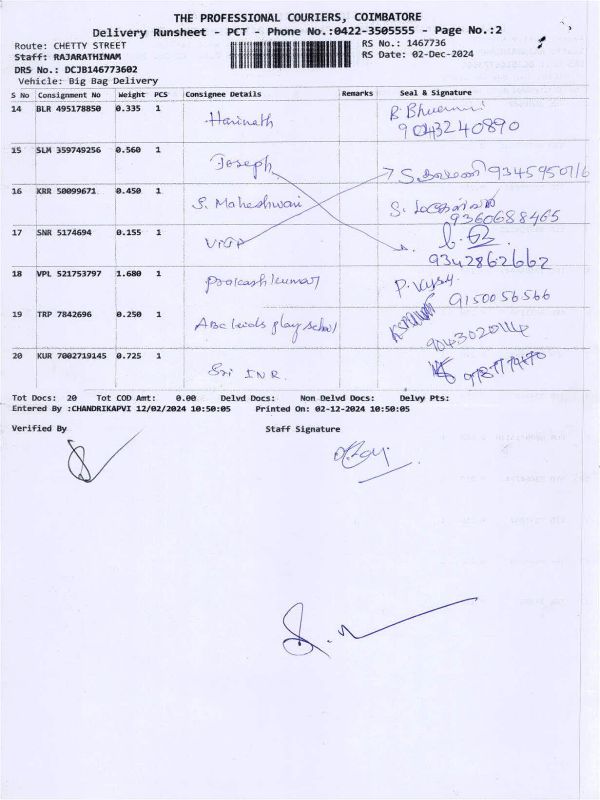 THE PROFESSIONAL COURIERS, COIMBATORE
Delivery Runsheet - PCT - Phone No.:0422-3505555 - Page No.:2
Route: CHETTY STREET RS No.: 1467736
Staff: RAJARATHINAM RS Date: 02-Dec-2024
DRS No.: DCJB146773602
Vehicle: Big Bag Delivery
S No Consignment No Weight PCS Consignee Details Remarks Seal & Signature
14 BLR 495178850 0.335 1 Harinath
9043240890
15 SLM 359749256 0.560 1 Joseph
16 KRR 50099671 0.450 1 S. Maheshwari
9360688465
17 SNR 5174694 0.155 1
9342862662
18 VPL 521753797 1.680 1 Prakash kumar
9150056566
19 TRP 7842696 0.250 1 ABC kids play school
20 KUR 7002719145 0.725 1 Sri INR
Tot Docs: 20 Tot COD Amt: 0.00 Delvd Docs: Non Delvd Docs: Delvy Pts:
Entered By :CHANDRIKAPVI 12/02/2024 10:50:05 Printed On: 02-12-2024 10:50:05
Verified By Staff Signature